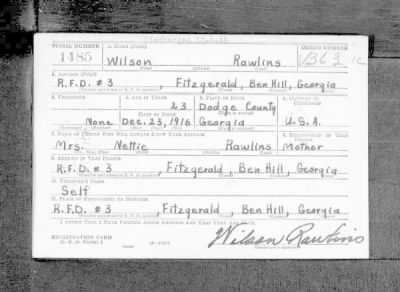 SERIAL NUMBER 1. NAME (Print) ORDER NUMBER
1485 Wilson Rawlins
2. ADDRESS (Print)
R.F.D. #3, Fitzgerald, Ben Hill, Georgia
3. TELEPHONE 4. AGE IN YEARS 5. PLACE OF BIRTH 6. COUNTRY OF CITIZENSHIP
23 Dodge County
DATE OF BIRTH
None Dec. 23, 1916 Georgia U.S.A.
7. NAME OF PERSON WHO WILL ALWAYS KNOW YOUR ADDRESS 8. RELATIONSHIP OF THAT PERSON
Mrs. Nettie Rawlins Mother
9. ADDRESS OF THAT PERSON
R.F.D. #3, Fitzgerald, Ben Hill, Georgia
10. EMPLOYER'S NAME
Self
11. PLACE OF EMPLOYMENT OR BUSINESS
R.F.D. #3, Fitzgerald, Ben Hill, Georgia
I AFFIRM THAT I HAVE VERIFIED ABOVE ANSWERS AND THAT THEY ARE TRUE.
REGISTRATION CARD
D. S. S. FORM 1
Wilson Rawlins